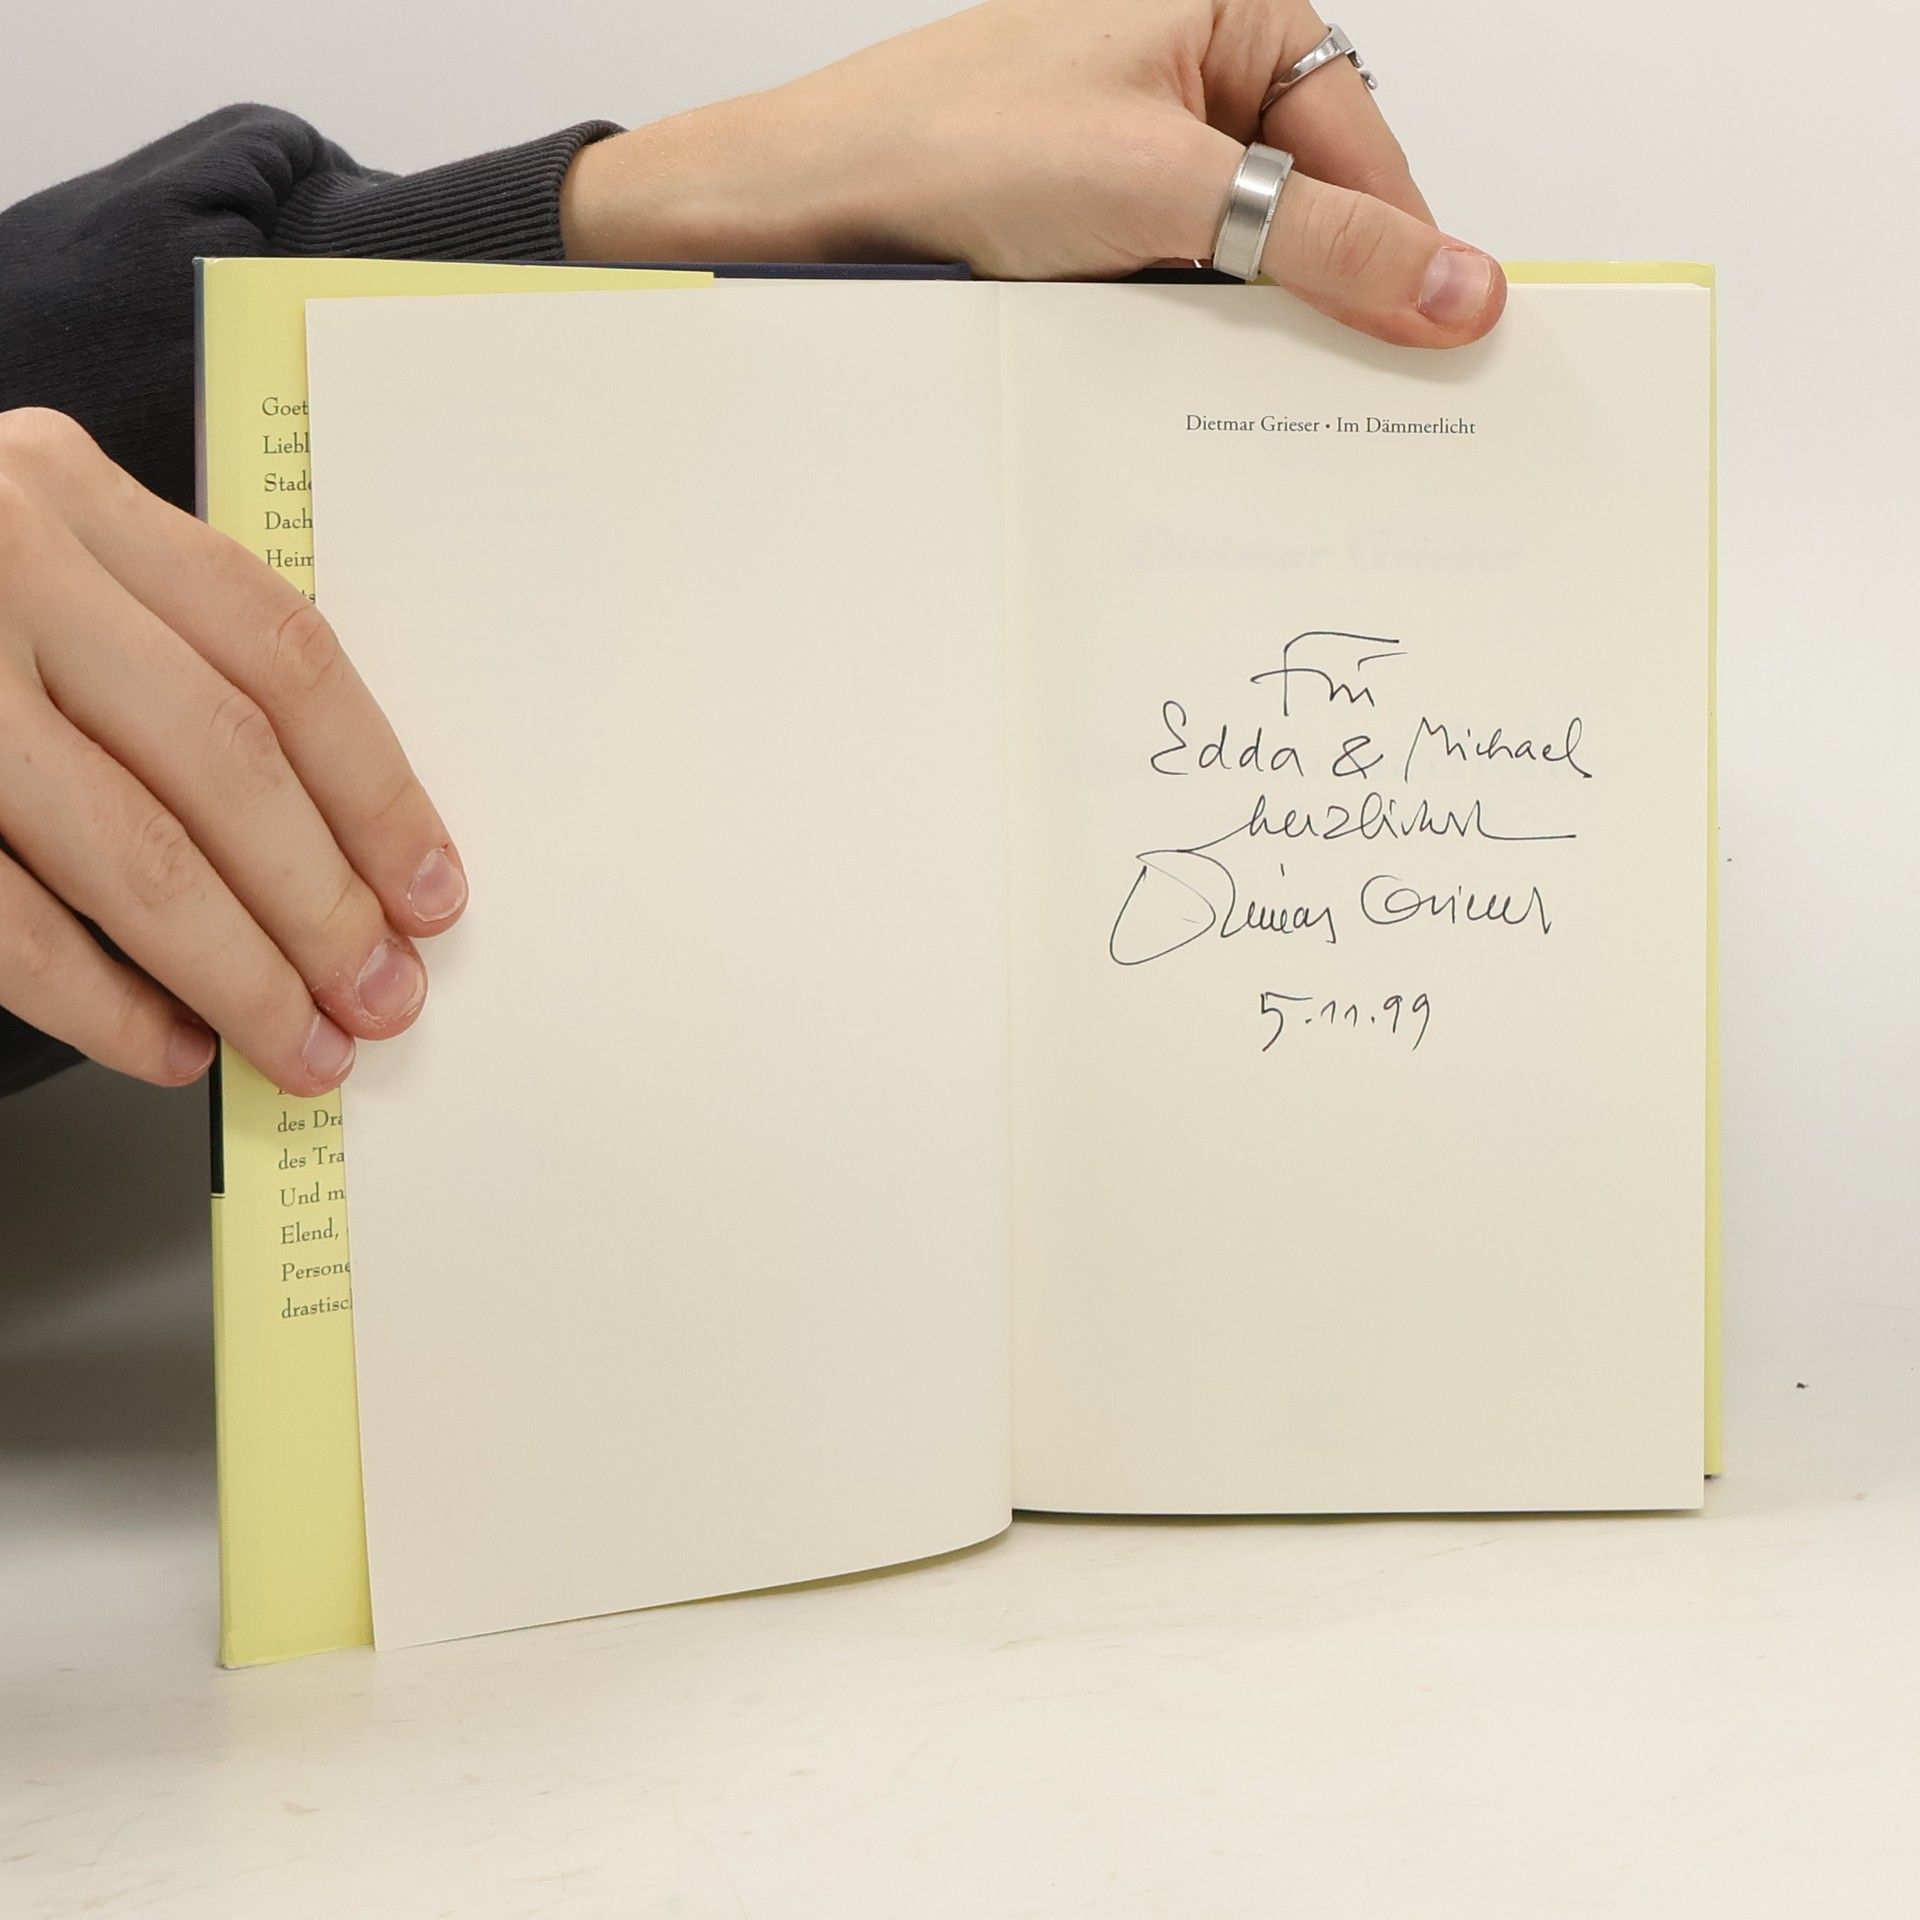 Goet
Liebl
Stad
Dach
Heim
ts
des Dra
des Tra
Und m
Elend,
Persone
drastisch
Dietmar Grieser • Im Dämmerlicht
Für
Edda & Michael
herzlichst
Dietmar Grieser
5.11.99